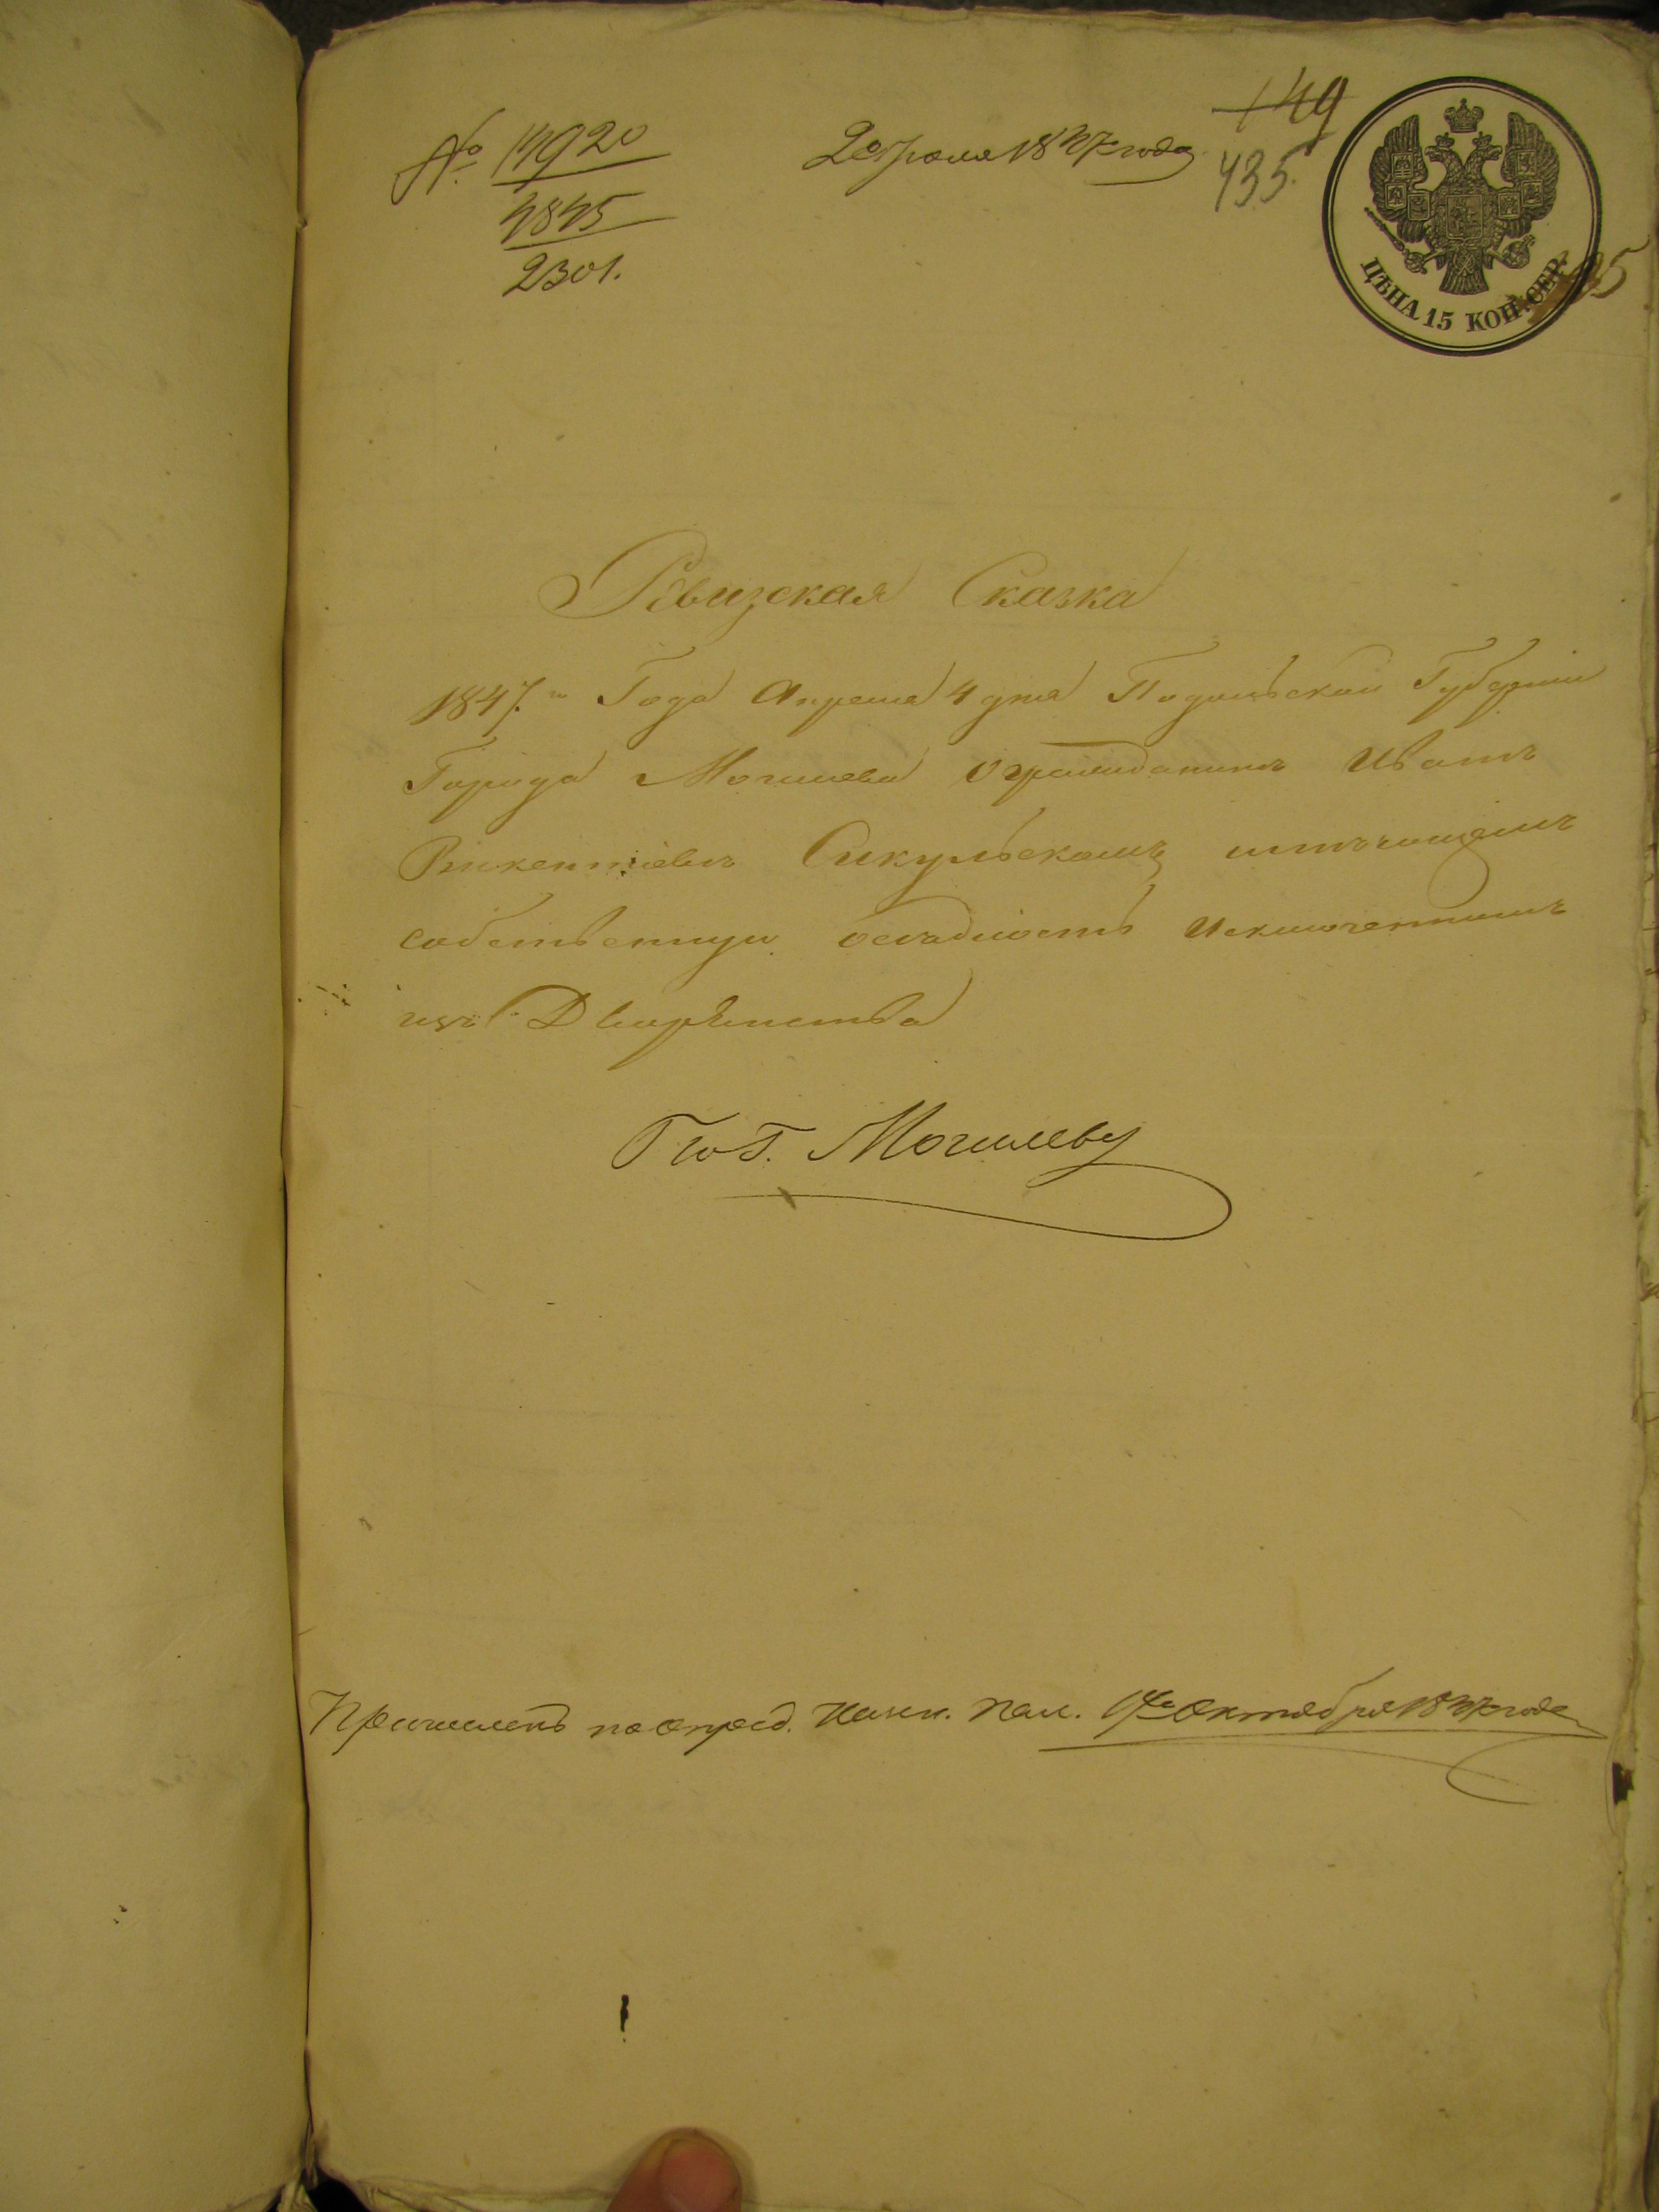 № 14920
4845
2301.
2 Іюля 1847 года
149
435.
ЦѢНА 15 КОП. СЕР.
Ревизская Сказка
1847.го Года Апреля 4 дня Подольской Губерніи
Города Могилева о гражданинѣ Иванѣ
Викентіевѣ Сикульскомъ имѣющемъ
собственную оседлость Исключенномъ
изъ Дворянства
По Г. Могилеву
Причисленъ по опред. Казен. Пал. 14го Октября 1847 года